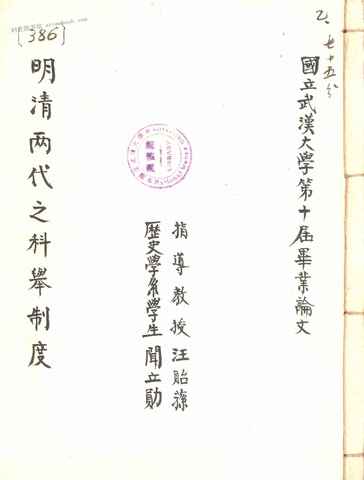 乙、七十五分
國立武漢大學第十屆畢業論文
指導教授 汪貽蓀
歷史學系學生 聞立勛
明清兩代之科舉制度
[386]